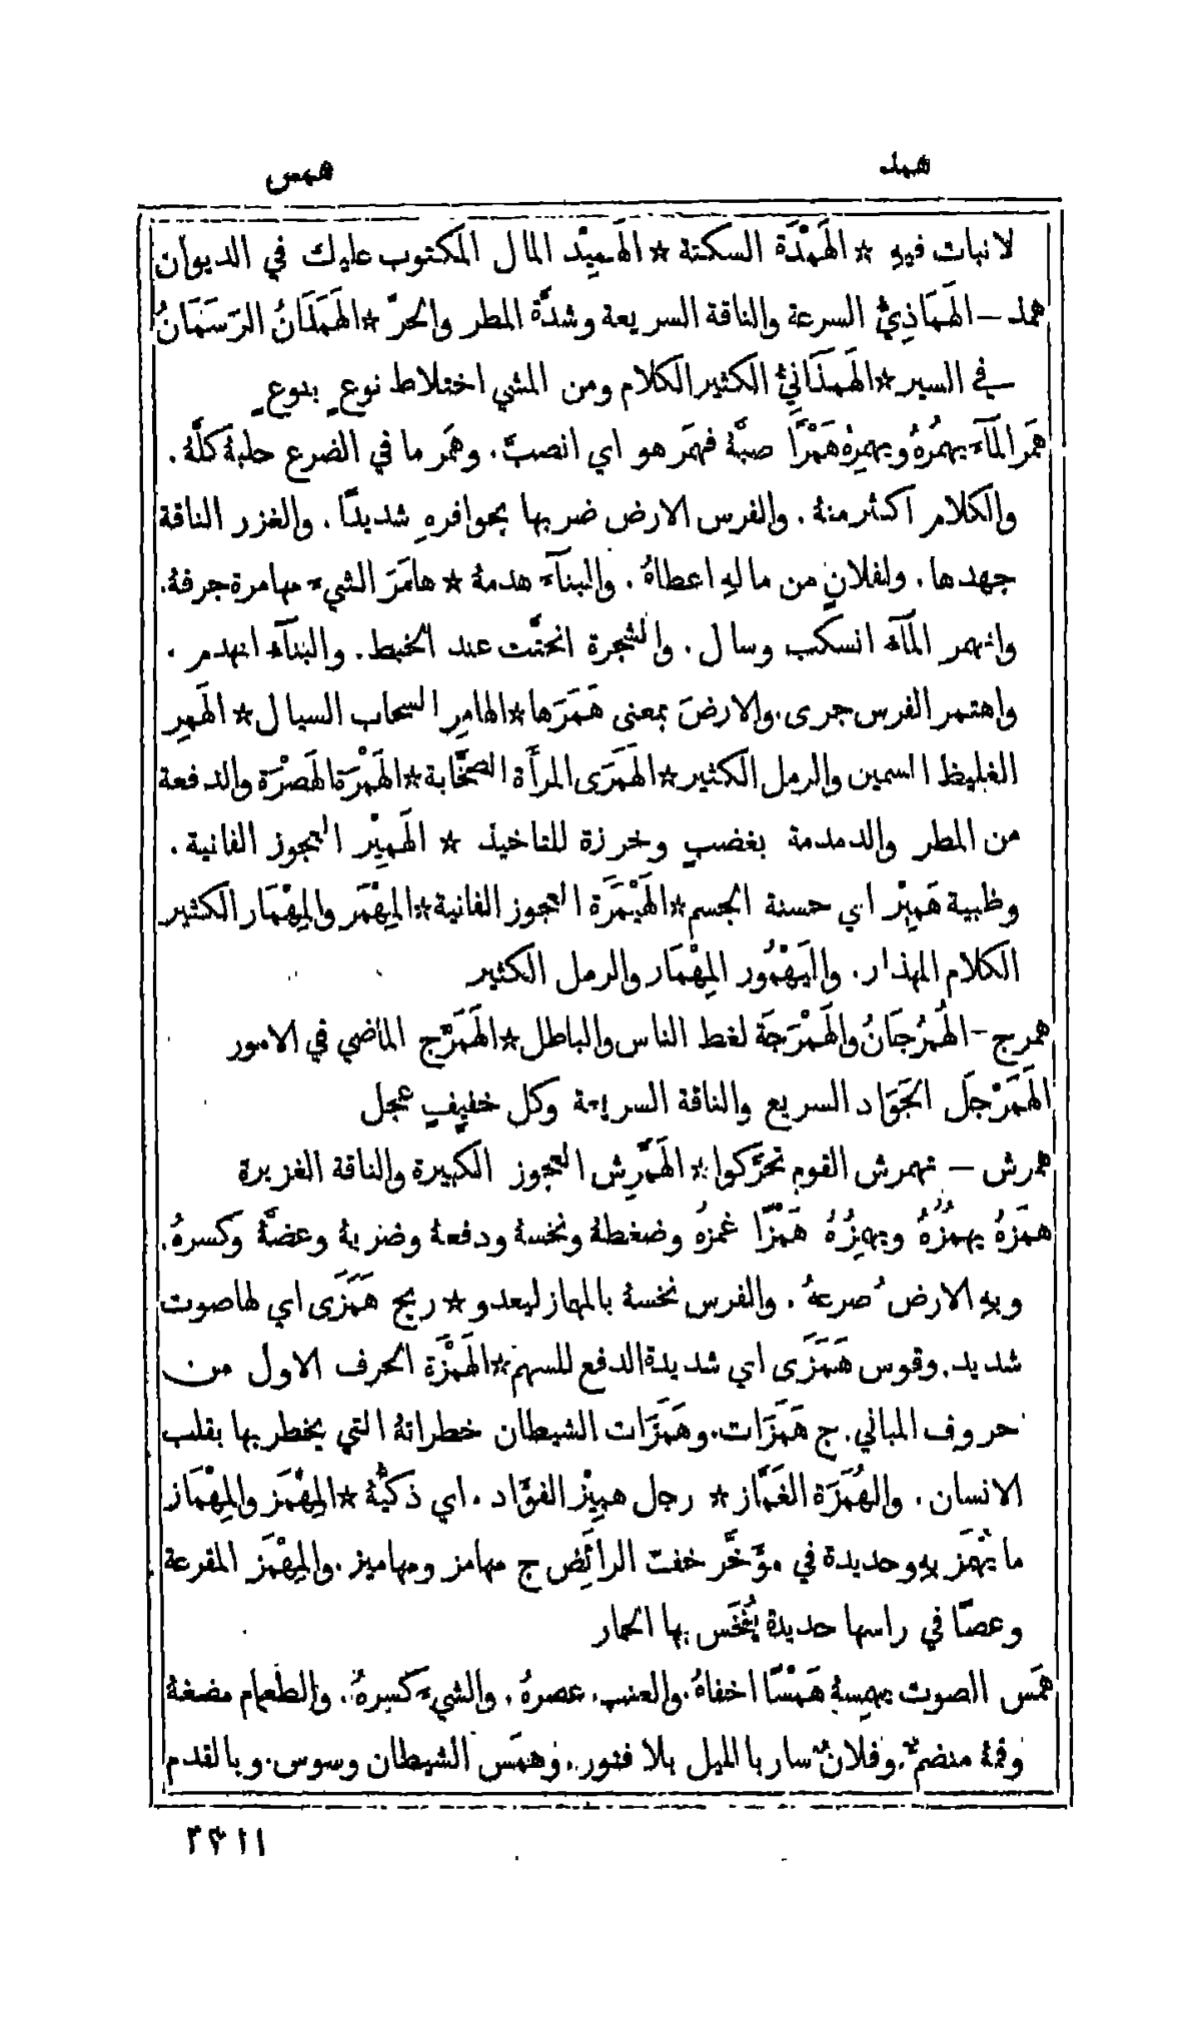 همذ
همس
لا نبات فيهِ * الهَمْدَة السكتة * الهَمِيْد المال المكتوب عليك في الديوان
همذ – الهَمَاذِيُّ السرعة والناقة السريعة وشدَّة المطر والحرّ * الهَمَذَانُ الرَسَمَانُ
في السير * الهَمَذَانِيُّ الكثير الكلام ومن المشي اختلاط نوعٍ بنوعٍ
هَمَر المآءَ يهمُرُهُ ويهمِرهُ هَمْرًا صبَّهُ فهمَر هو اي انصبَّ. وهمَر ما في الضرع حلبهُ كلَّهُ.
والكلام اكثر منهُ. والفرس الارض ضربها بحوافرهِ شديدًا. والغزر الناقة
جهدها. ولفلانٍ من مالهِ اعطاهُ. والبنآءَ هدمهُ * هامَرَ الشيءَ مهامرة جرفهُ.
وانهمر المآءُ انسكب وسال. والشجرة انحتَّت عند الخبط. والبنآءُ انهدم.
واهتمر الفرس جرى. والارضَ بمعنى هَمَرَها * الهامِر السحاب السيال * الهَمِر
الغليظ السمين والرمل الكثير * الهَمَرَى المرأَة الصخَّابة * الهَمْرَة الهَصْرَة والدفعة
من المطر والدمدمة بغضبٍ وخرزة للتاخيذ * الهَمِيْر العجوز الفانية.
وظبية هَمِيْر اي حسنة الجسم * الهَيْمَرَة العجوز الفانية * المِهْمَر والمِهْمَار الكثير
الكلام المهذار. واليَهْمُور المِهْمَار والرمل الكثير
همرج – الهَمَرُجَانُ والهَمْرَجَة لغط الناس والباطل * الهَمَرَّج الماضي في الامور
الهَمَرْجَل الجَوَاد السريع والناقة السريعة وكل خفيفٍ عجل
همرش – تهمرش القوم تحرَّكوا * الهَمَّرِش العجوز الكبيرة والناقة الغزيرة
همَزهُ يهمُزُهُ ويهمِزُهُ هَمْزًا غمزهُ وضغطهُ ونخسهُ ودفعهُ وضربهُ وعضَّهُ وكسرهُ.
وبهِ الارضَ صرعهُ. والفرس نخسهُ بالمهماز ليعدو * ريح هَمَزَى اي لها صوت
شديد. وقوس هَمَزَى اي شديدة الدفع للسهم * الهَمْزَة الحرف الاول من
حروف المباني. ج هَمَزَات. وهَمَزَات الشيطان خطراتهُ التي يخطر بها بقلب
الانسان. والهُمَزَة الغَمَّاز * رجل هميْز الفوَّاد. اي ذكيُّهُ * المِهْمَز والمِهْمَاز
ما يُهمَز بهِ وحديدة في موَّخَّر خفّ الرائِض ج مهامز ومهاميز. والمِهْمَز المقرعة
وعصًا في راسها حديدة يُنْخَس بها الحمار
همَس الصوت يهمِسهُ هَمْسًا اخفاهُ. والعنب. عصرهُ. والشيءَ كسرهُ. والطعام مضغهُ
وفمهُ منضمٌّ. وفلانٌ سار بالليل بلا فتور. وهمَس الشيطان وسوس. وبالقدم